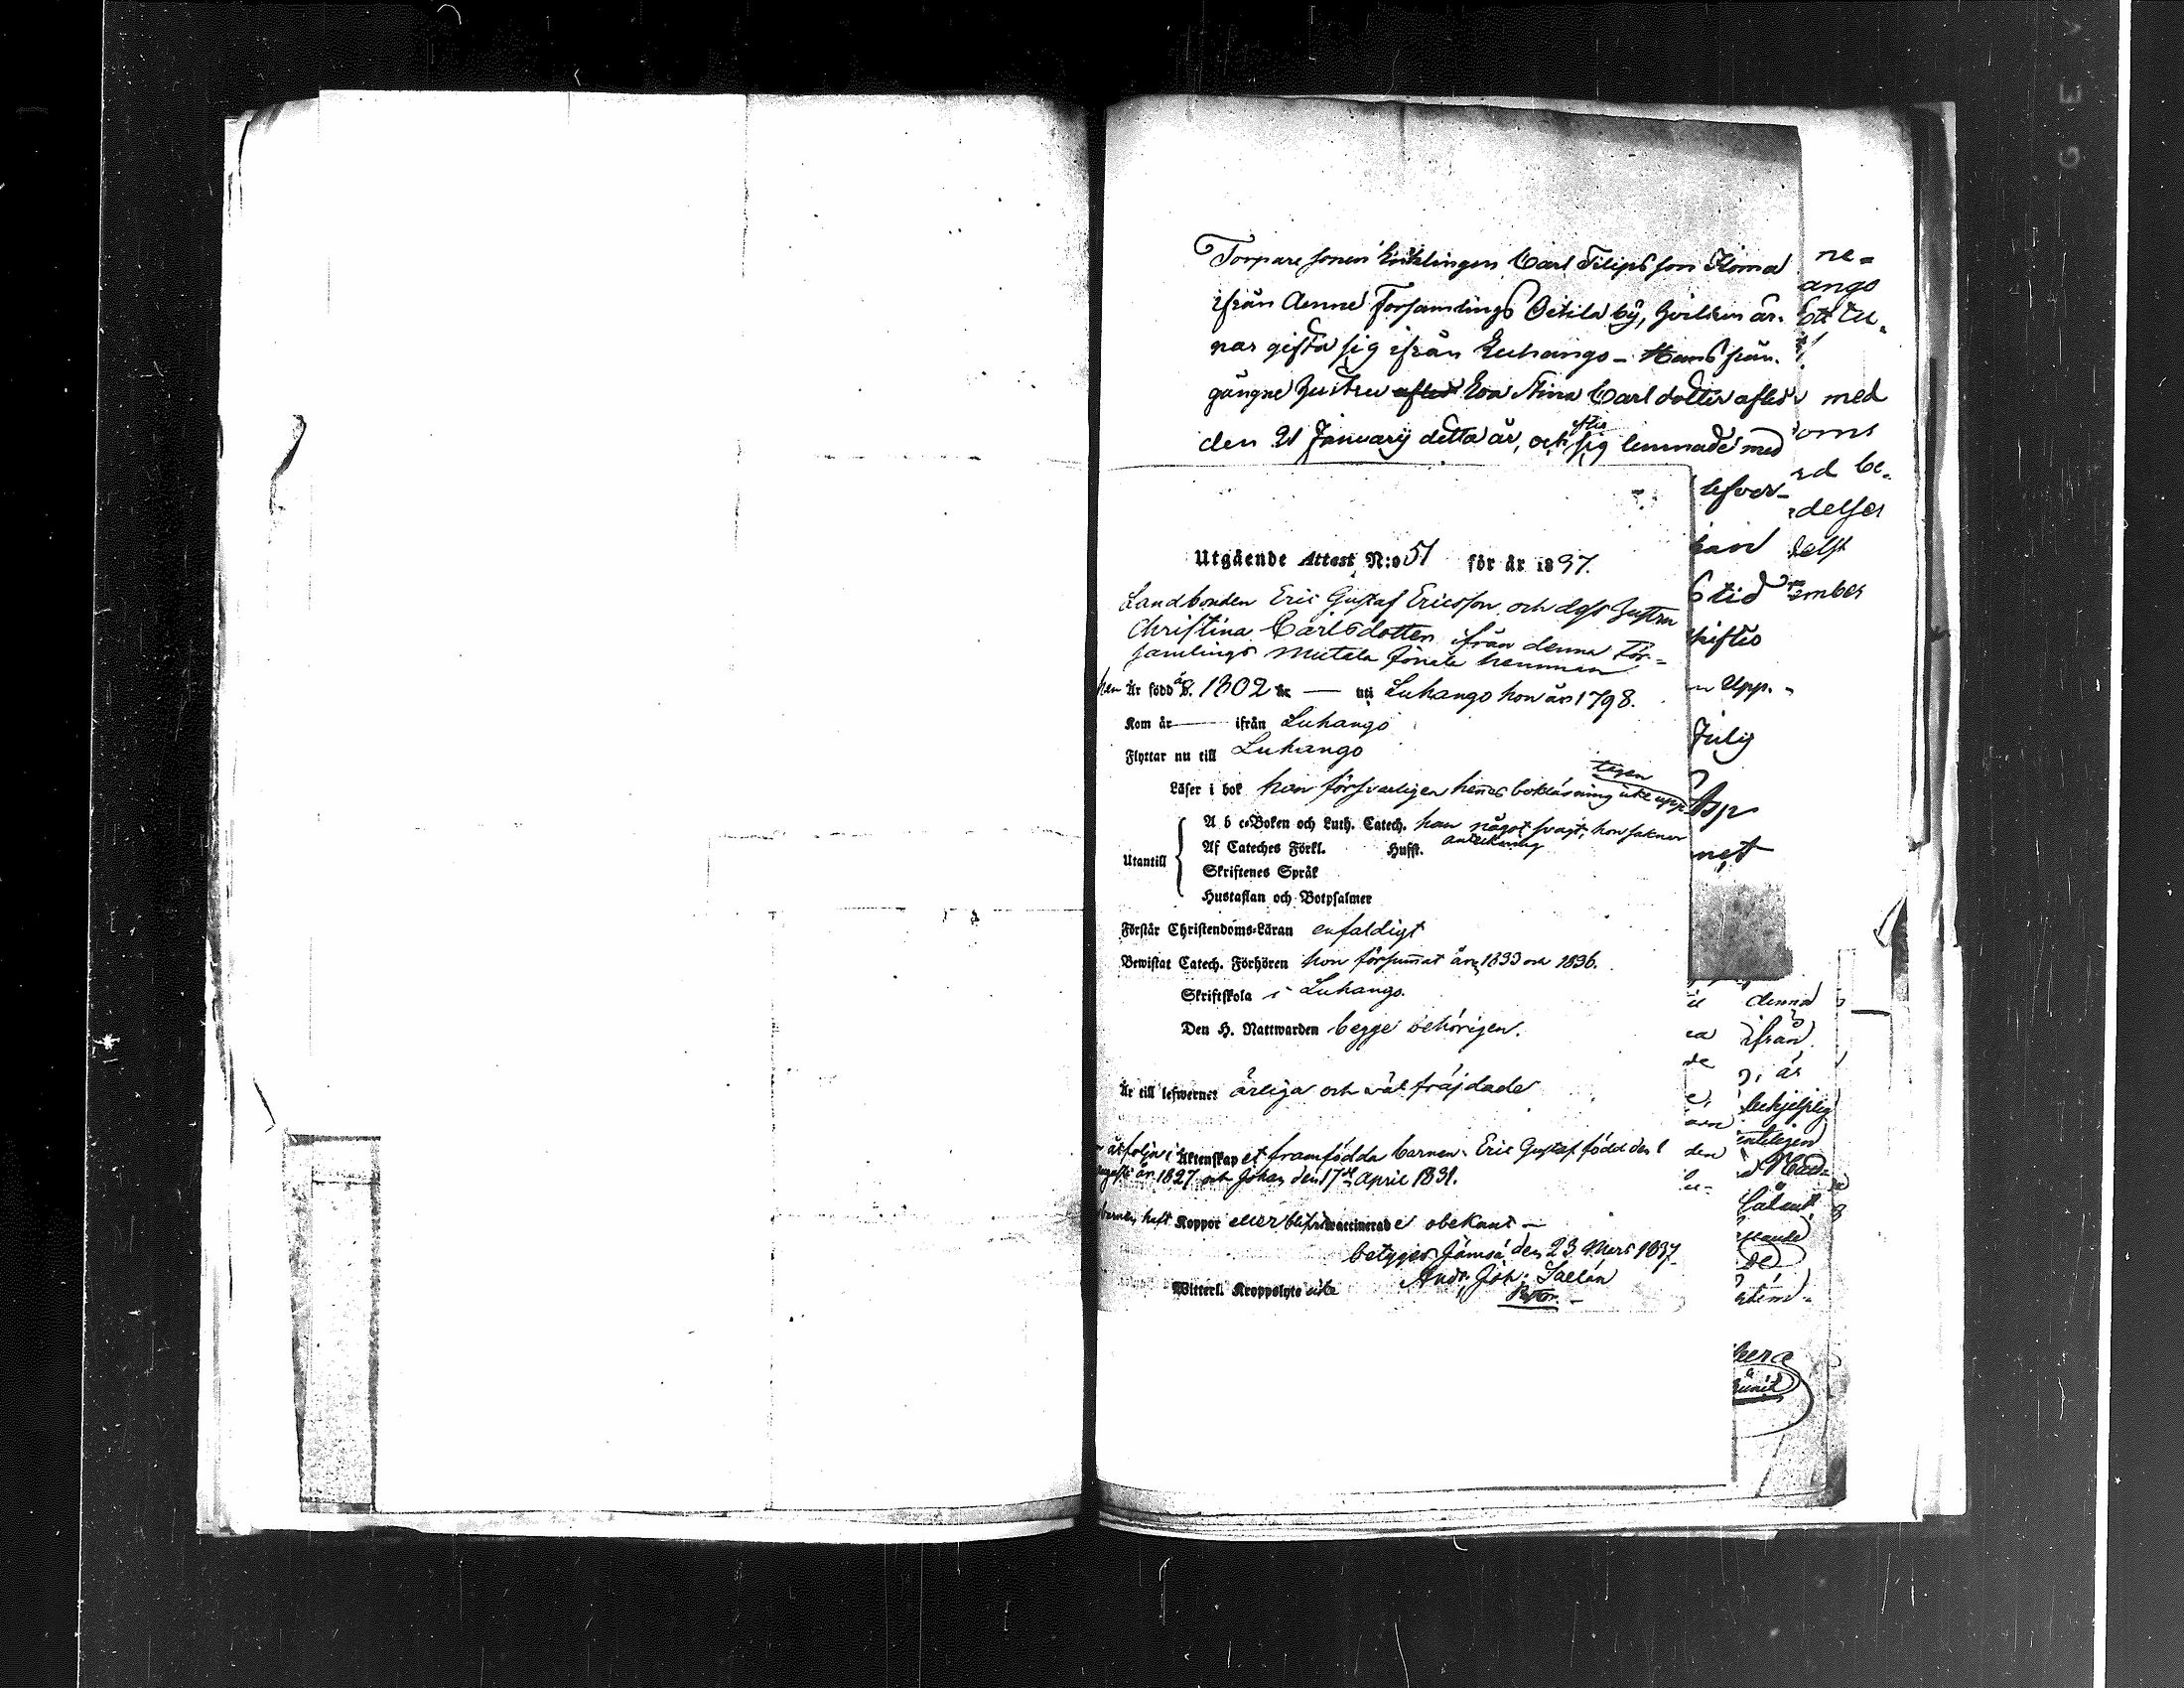 Torpare sonen Enklingen Carl Filipsson Koma
ifrån denne Forsamlings Oetila by, hvilken är.
nar gifta sig ifrån Luhango - Hans från.
gångne hustru Eva Stina Carlsdotter afled
den 21 January detta år, och efter sig lemnade med
ne=
ango
med
oms
rd be.
delser
ember
lefver-
tid
skiftes
Upp.
July
net
Utgående Attest N:o 51 för år 1837.
Landbonden Eric Gustaf Ericsson och dess hustru
Christina Carlsdotter ifrån denna För=
samlings Mutala Jönela hemman
han Är född år 1802 — uti Luhango hon år 1798.
Kom år — ifrån Luhango
Flyttar nu till Luhango
Läser i bok han försvarligen hennes bokläsning icke upp-
tagen
Utantill
A b c-Boken och Luth. Catech. han något svagt, hon saknar
Af Cateches Förkl. Husft. anteckning
Skriftenes Språk
Hustaflan och Botpsalmer
Förstår Christendoms-Läran enfaldigt
Bewistat Catech. Förhören hon försummat åren 1833 och 1836.
Skriftskola i Luhango.
Den H. Nattwarden begge behörigen.
Är till lefwernet ärliga och väl fräjdade
åtfölja i Äktenskapet framfödda barnen: Eric Gustaf född den 1
Augusti år 1827 och Johan den 17de April 1831.
barnen haft Koppor eller blifvit waccinerade obekant —
betygar Jämsä den 23 Mars 1837
Witterl. Kroppslyte icke Andr. Joh: Saelán
Pastor.
denna
ifrån
är